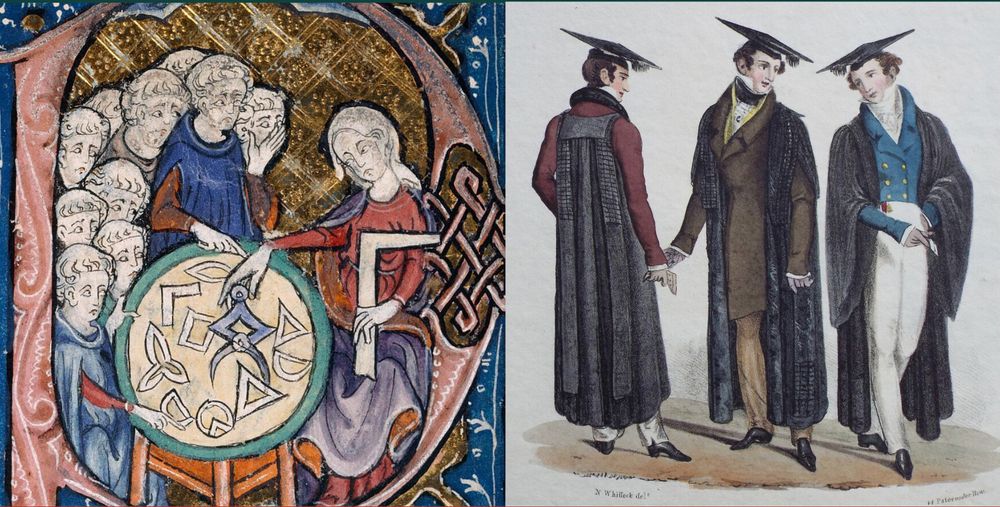 N Whittock delt.
44 Paternoster Row.